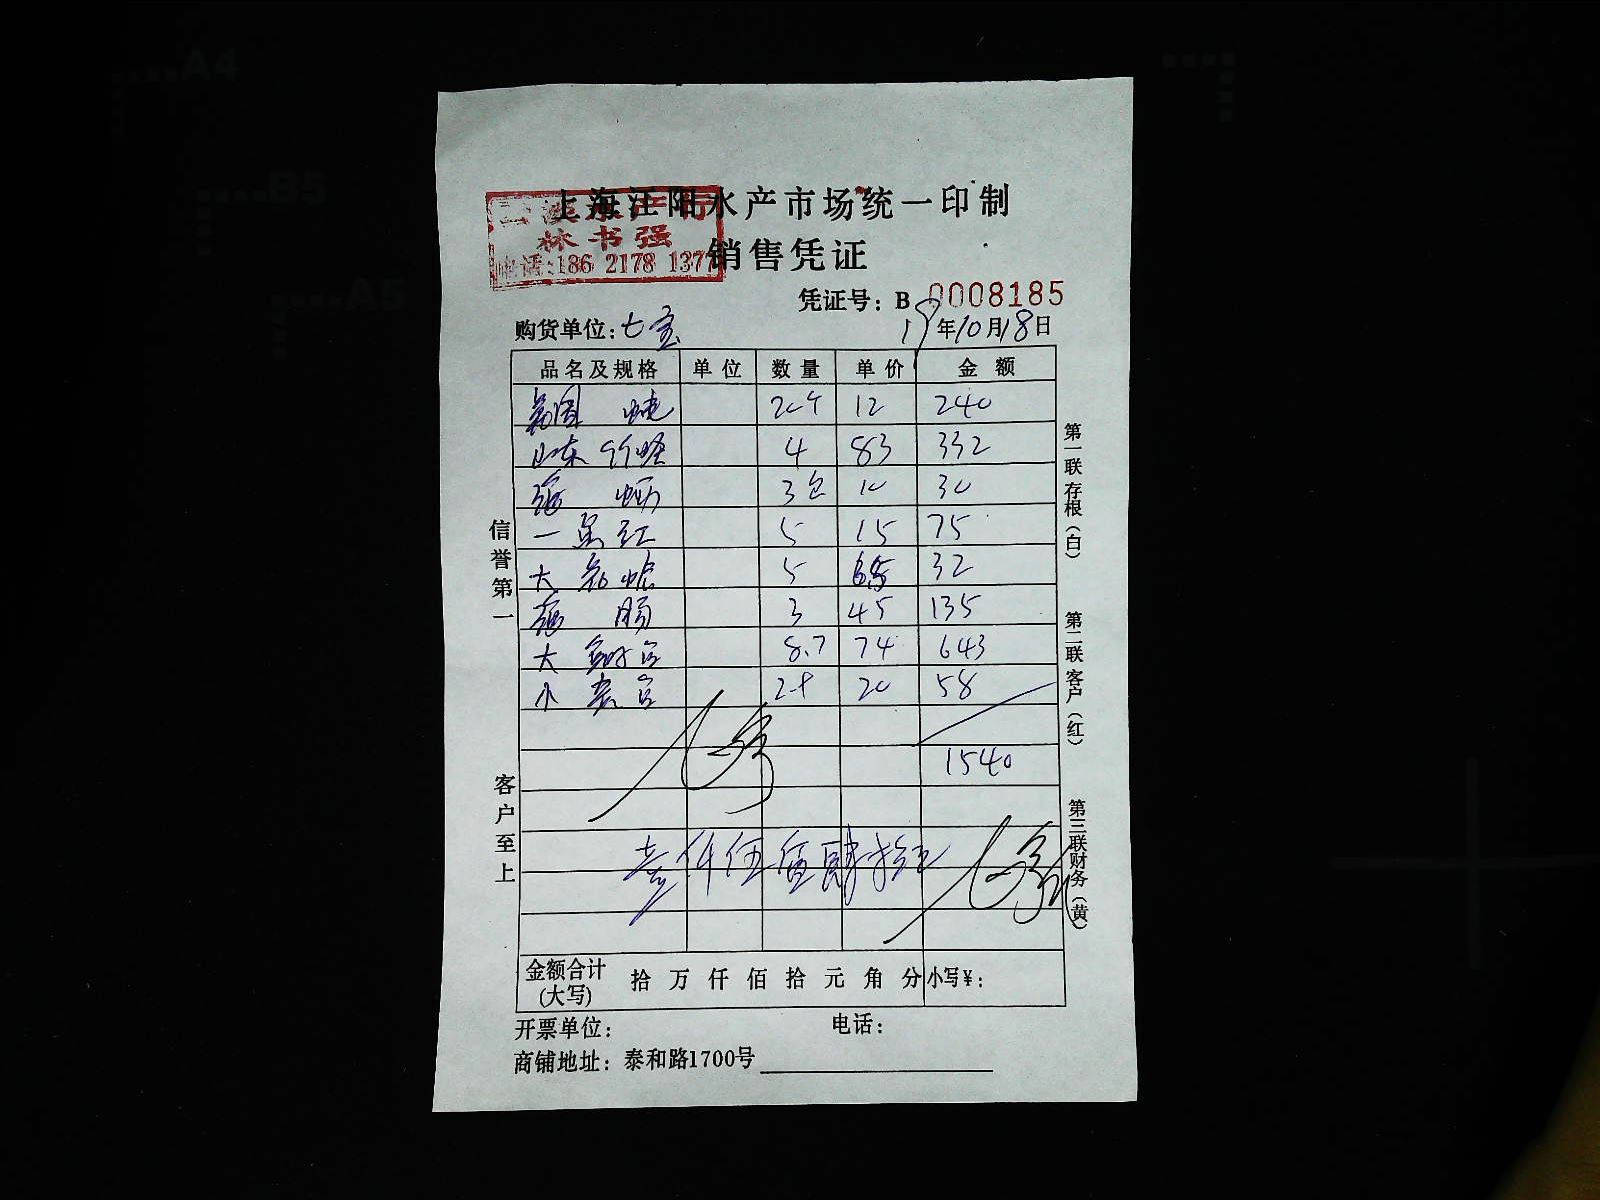 A4
B5
A5
上海江阳水产市场统一印制
水产行
林书强
电话:186 2178 1377
销售凭证
凭证号: B 0008185
购货单位:七宝
19年10月18日
品名及规格 单位 数量 单价 金额
12 240
山东 4 83 332
3包 10 30
一点红 5 15 75
大 5 65 32
3 45 135
大 8.7 74 643
小 20 58
1540
壹仟伍佰肆拾元
金额合计(大写) 拾 万 仟 佰 拾 元 角 分 小写¥:
开票单位: 电话:
商铺地址: 泰和路1700号
信誉第一
客户至上
第一联存根(白)
第二联客户(红)
第三联财务(黄)